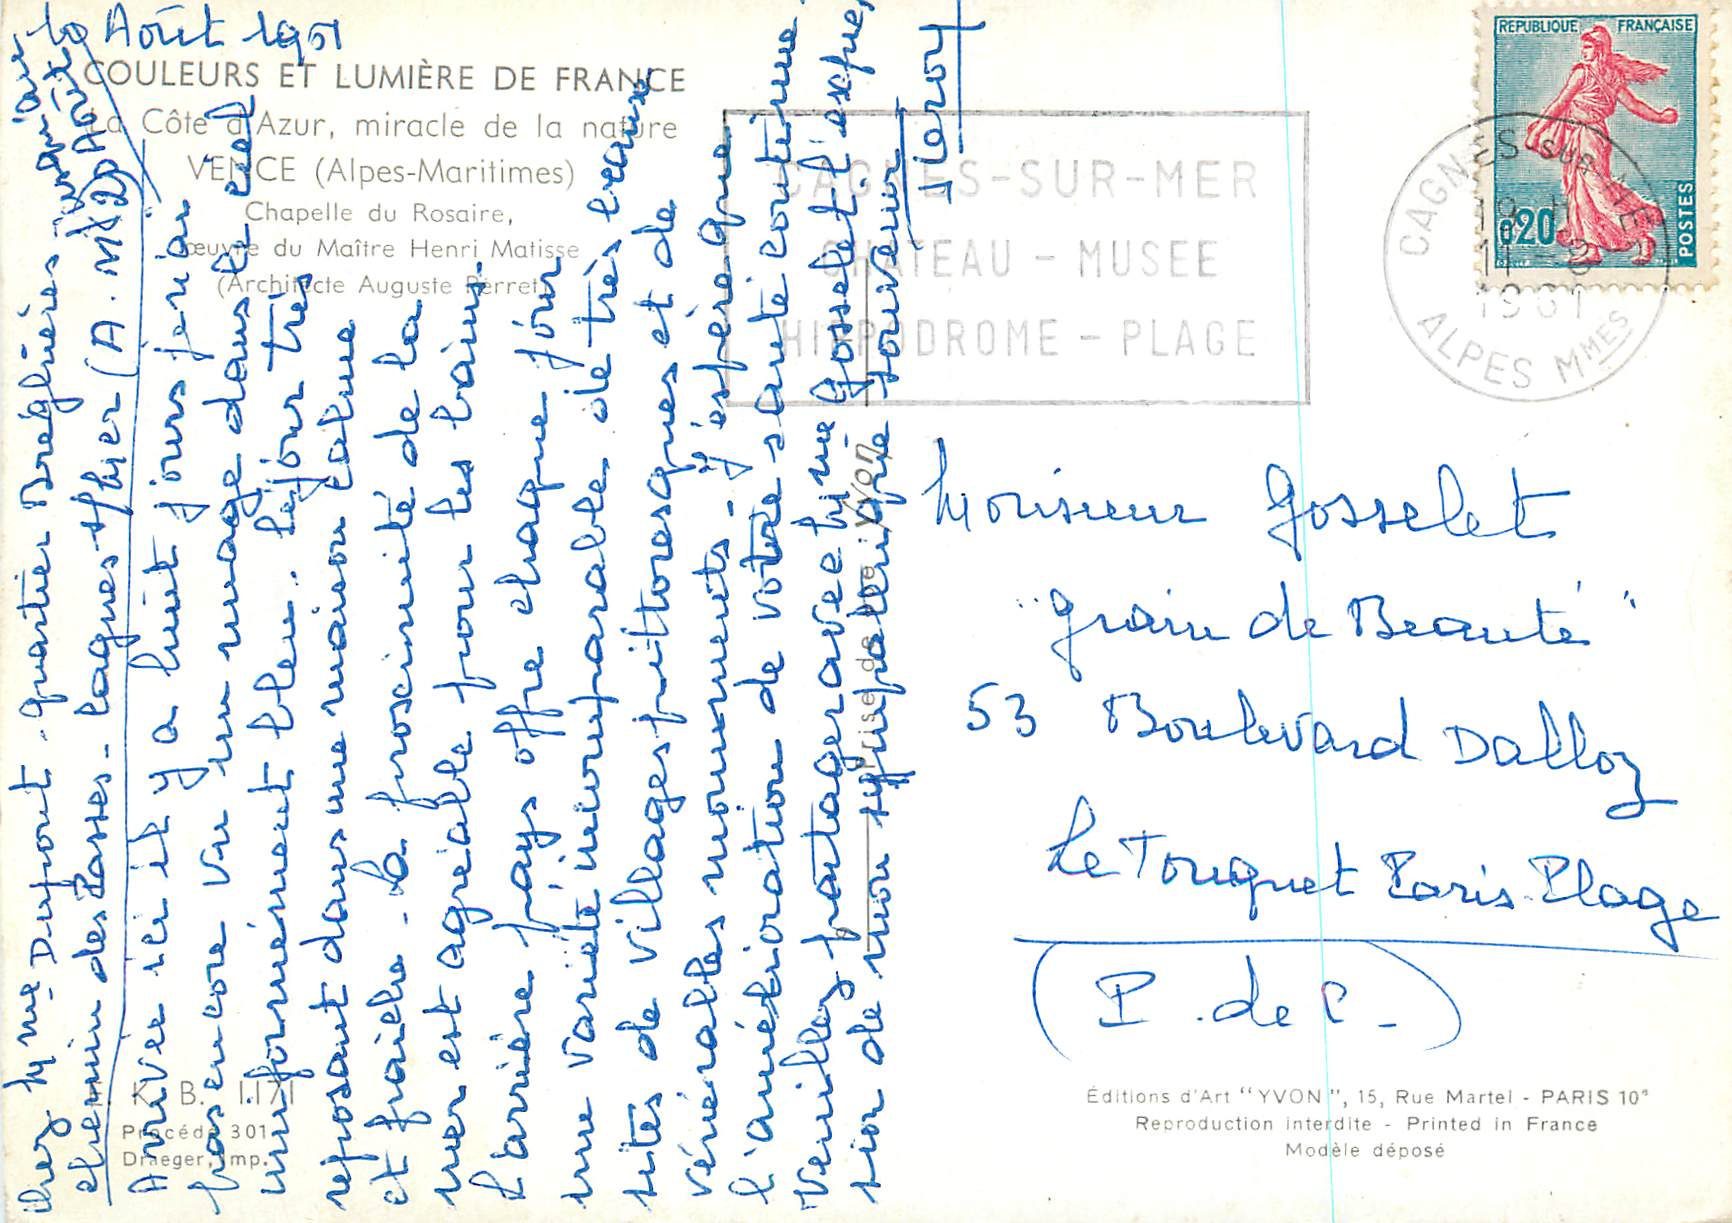 10 Août 1961
COULEURS ET LUMIÈRE DE FRANCE
La Côte d'Azur, miracle de la nature
VENCE (Alpes-Maritimes)
Chapelle du Rosaire,
œuvre du Maître Henri Matisse
(Architecte Auguste Perret)
chez Mme Dupont - quartier Bréguières jusqu'au
chemin des Passes - Cagnes s/Mer (A. M) 20 Août
Arrivée ici il y a huit jours je n'ai
pas encore vu un nuage dans le ciel
uniformément bleu.. Séjour très
reposant dans une maison calme
et fraîche - La proscimité de la
mer est agréable pour les bains -
L'arrière pays offre chaque jour
une variété incomparable de très beaux
sites de villages pittoresques et de
vénérables monuments - J'espère que
l'amélioration de votre santé continue -
Veuillez partager avec Mme Gosselet l'expres
sion de mon sympathique souvenir
J Leroy
K. B. 1.171
Procédé 301
Draeger, imp.
Prise de vue Yvon
REPUBLIQUE FRANÇAISE
0,20
POSTES
CAGNES SUR MER
19 H
11 - 8
1961
ALPES MMES
CAGNES-SUR-MER
CHATEAU - MUSEE
HIPPODROME - PLAGE
Monsieur Gosselet
"Grain de Beauté"
53 Boulevard Dalloz
Le Touquet Paris-Plage
(P. de C-)
Éditions d'Art "YVON", 15, Rue Martel - PARIS 10e
Reproduction interdite - Printed in France
Modèle déposé